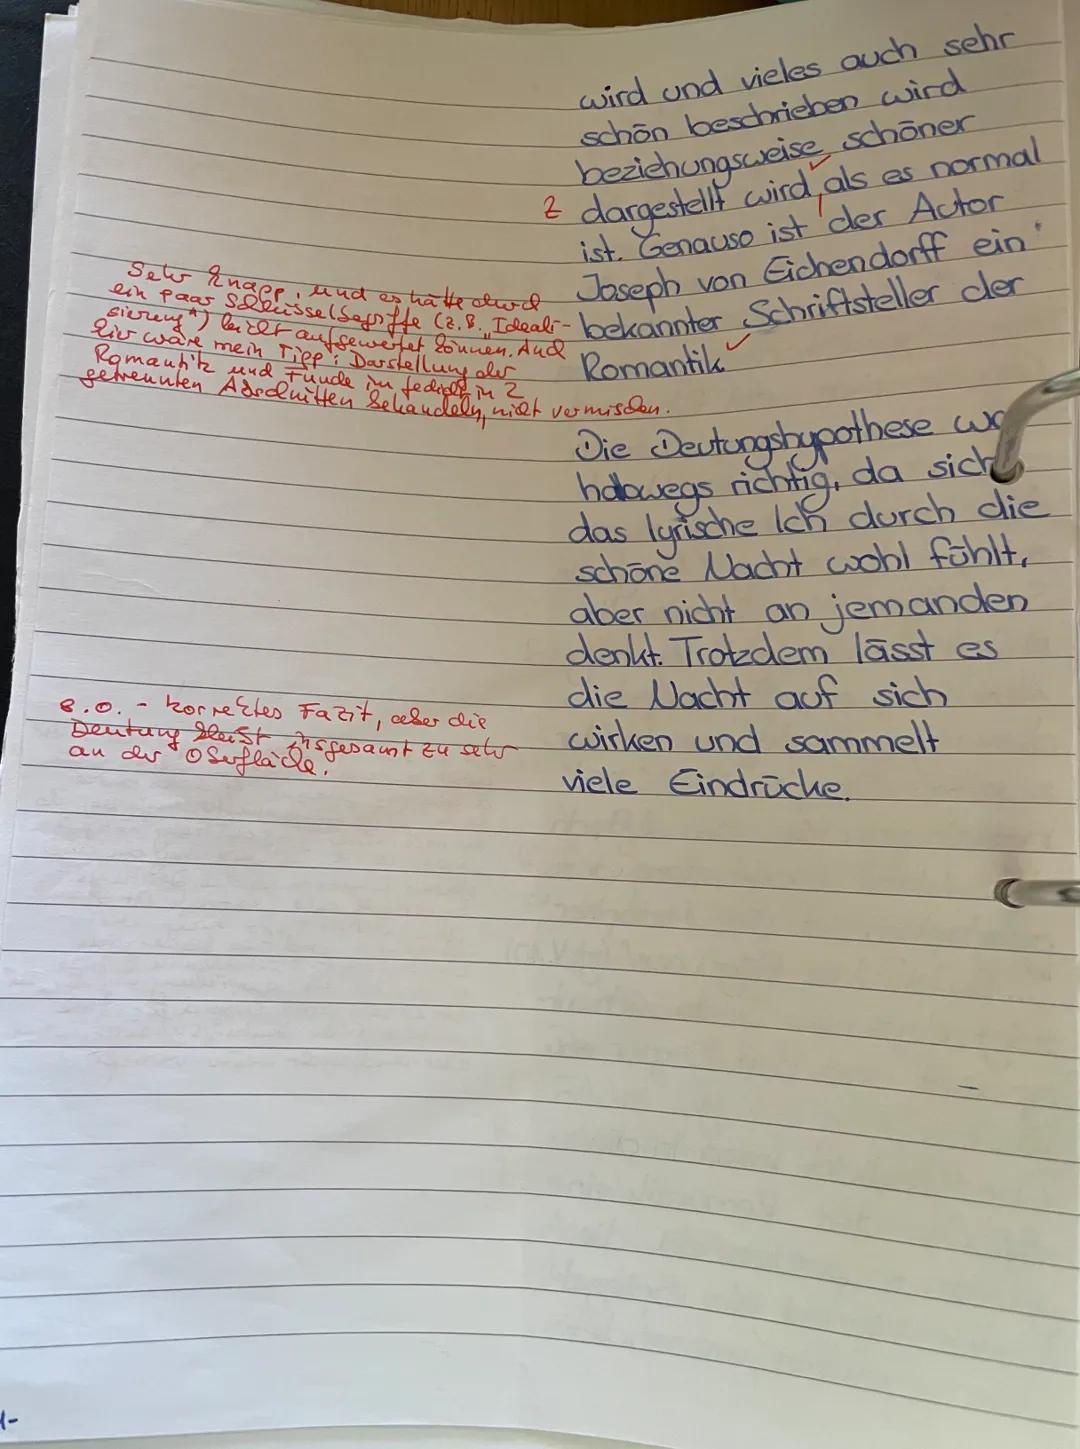 wird und vieles auch sehr
schön beschrieben wird
beziehungsweise schöner
Z dargestellt wird, als es normal
ist. Genauso ist der Autor
Joseph von Eichendorff ein
bekannter Schriftsteller der
Romantik.
Sehr knapp, und es hätte durch
ein paar Schlüsselbegriffe (z.B. "Ideali-
sierung") leicht aufgewertet können. Auch
hier wäre mein Tipp: Darstellung der
Romantik und Funde im Gedicht in 2
getrennten Abschnitten behandeln, nicht vermischen.
Die Deutungshypothese
halbwegs richtig, da sich
das lyrische Ich durch die
schöne Nacht wohl fühlt,
aber nicht an jemanden
denkt. Trotzdem lässt es
die Nacht auf sich
wirken und sammelt
viele Eindrücke.
s.o. - korrektes Fazit, aber die
Deutung bleibt insgesamt zu sehr
an der Oberfläche.